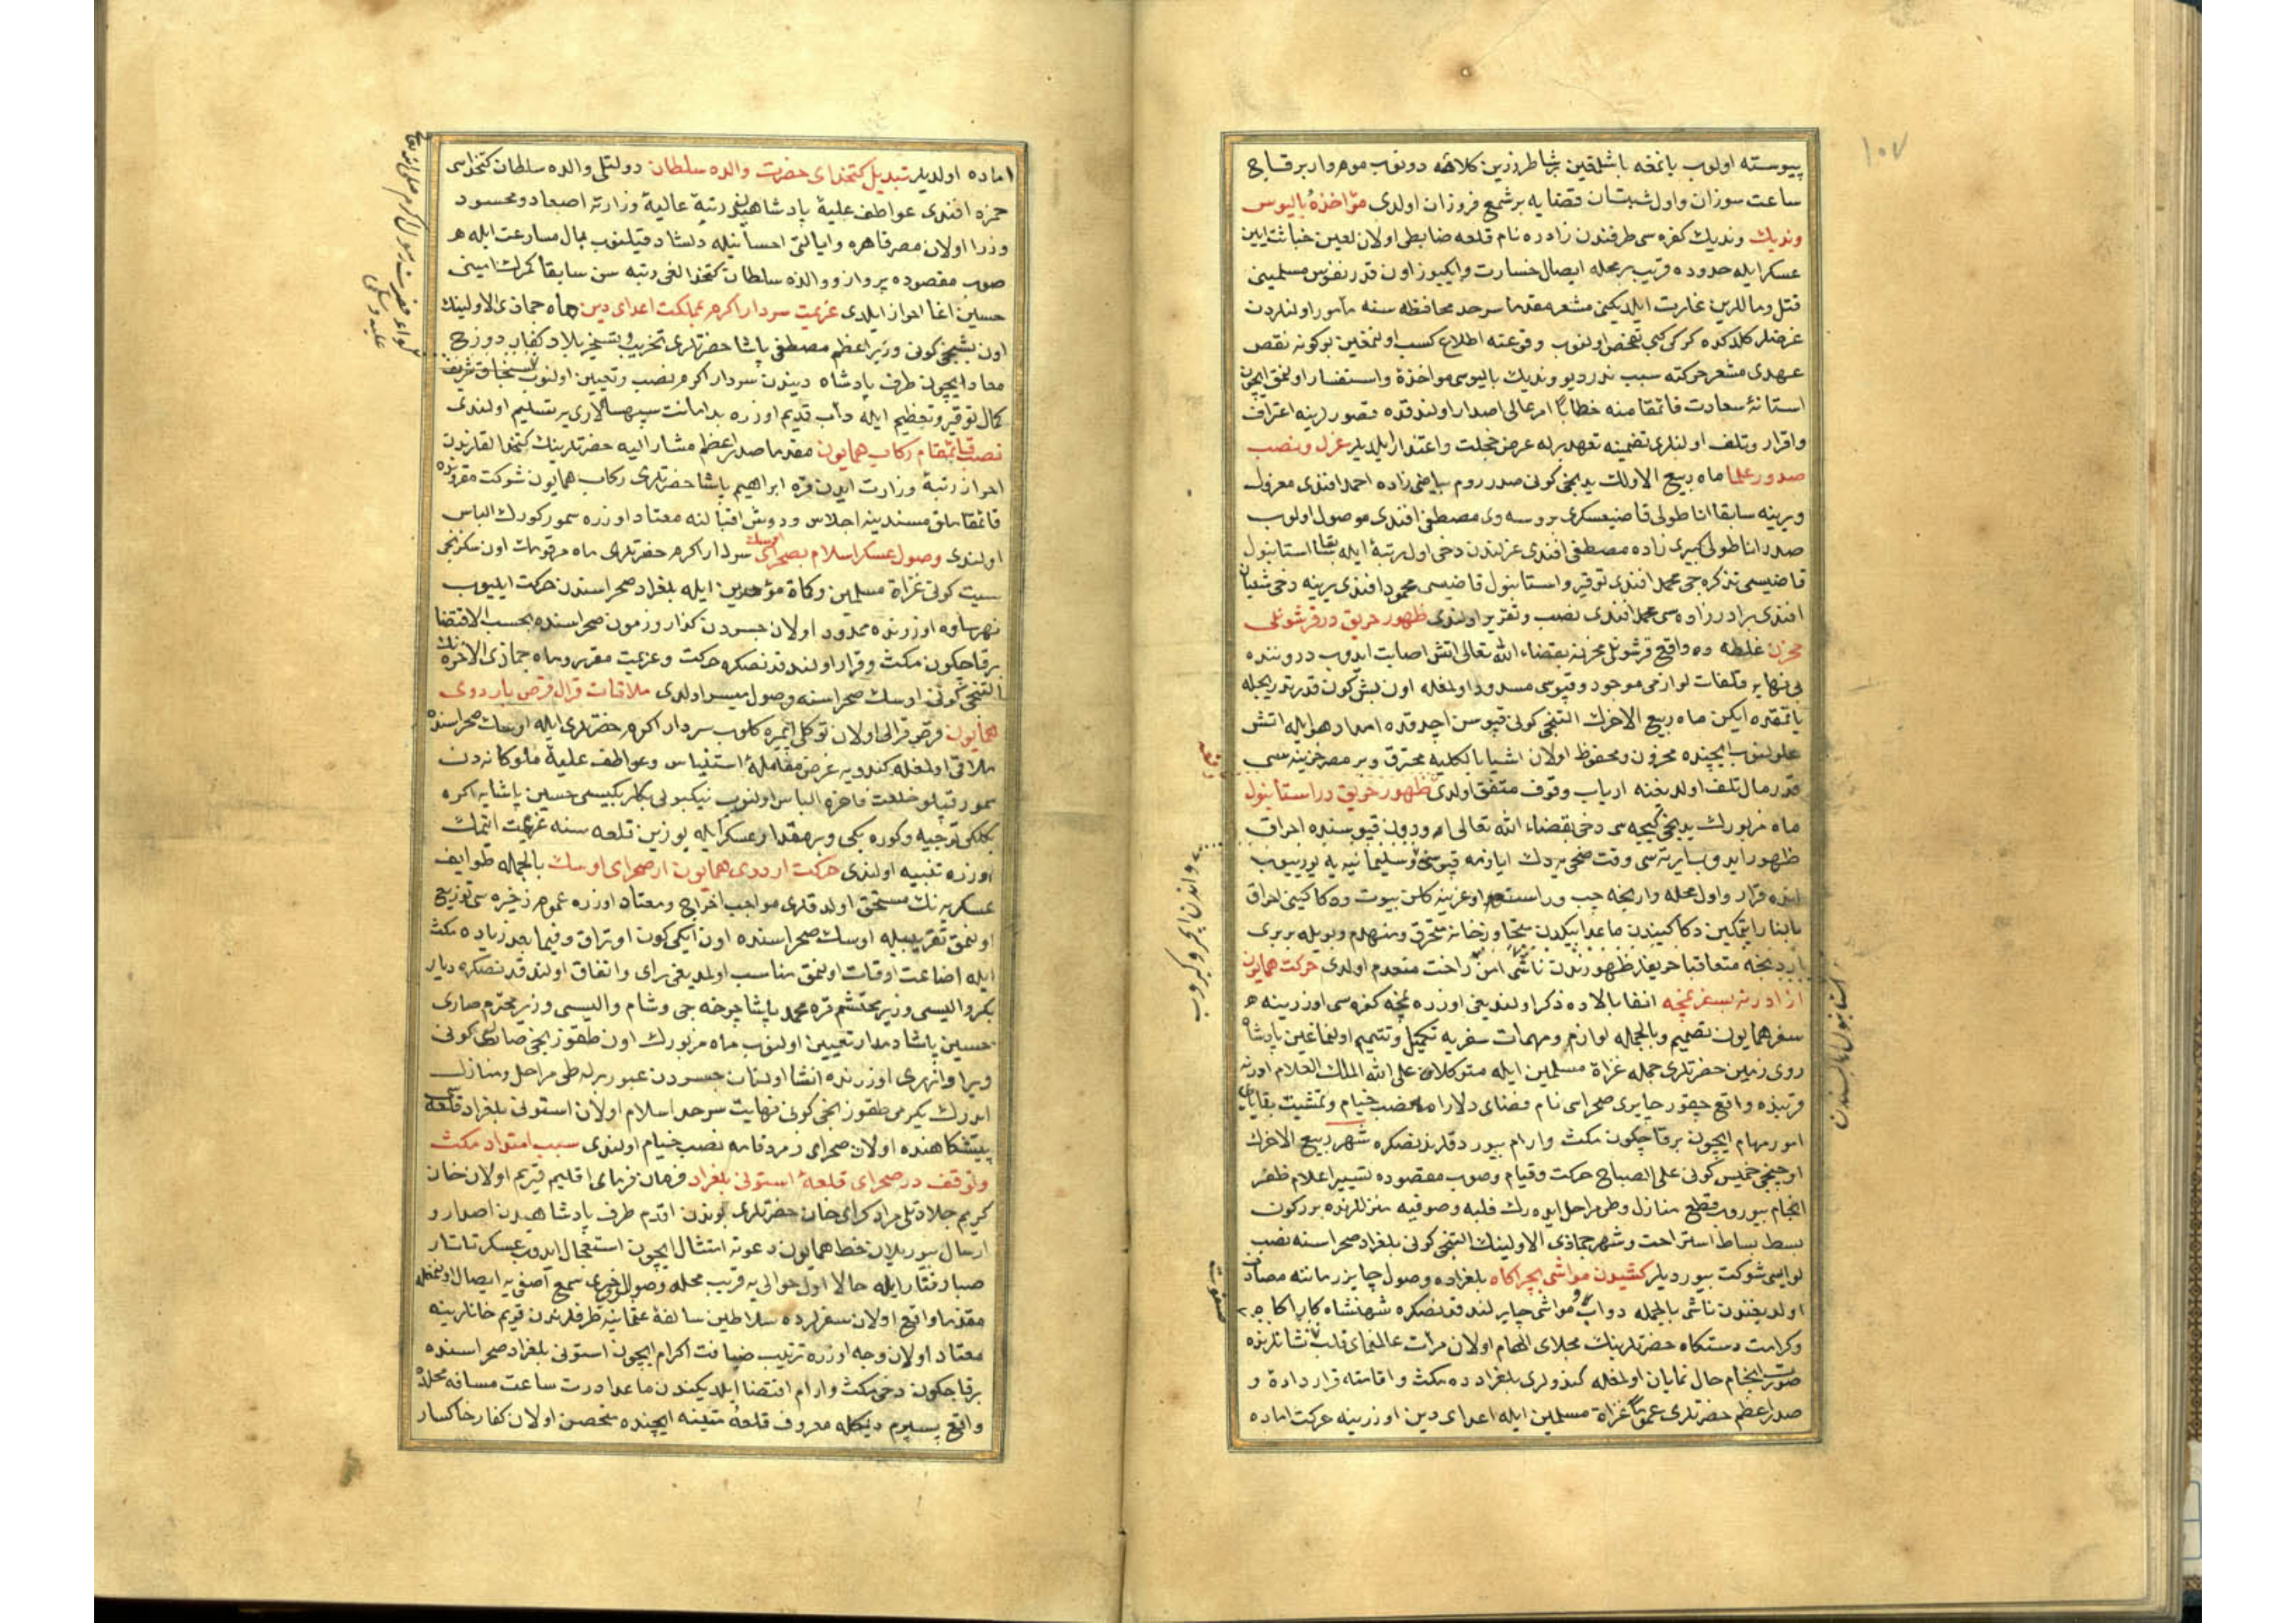 ١٠٧
پیوسته اولوب یانمغه باشلمقین برشاطر زرین کلاهه دونوب موم وار برقاچ
ساعت سوزان واول شبستان قضایه برشمع فروزان اولدی مؤاخذهٔ بالیوس
وندیك وندیك کفره سی طرفندن زادره نام قلعه ضابطی اولان لعین خباثت ایین
عسکر ایله حدوده قریب برمحله ایصال خسارت وایکیوز اون قدر نفوس مسلمینی
قتل و ماللرین غارت ایلدیکنی مشعر مقدما سرحد محافظه سنه مأمور اولنلردن
عرضلر کلدکده کرکی کبی تفحص اولنوب وقوعنه اطلاع کسب اولنمغین بوکونه نقض
عهدی مشعر حرکته سبب ندر دیو وندیك بالیوسی مواخذة واستفسار اولنمق ایچون
استانهٔ سعادت قائمقامنه خطابا امر عالی اصدار اولندقده قصورلرینه اعتراف
واقرار وتلف اولنلری تضمینه تعهد برله عرض خجلت واعتذار ایلدیلر عزل ونصب
صدور علما ماه ربیع الاولك یدنجی کونی صدر روم بیاضی زاده احمد افندی معزول
ویرینه سابقا اناطولی قاضیعسکری بروسه وی مصطفی افندی موصول اولوب
صدر اناطولی کبیری زاده مصطفی افندی عزلندن دخی اول رتبهٔ ایله بقا استانبول
قاضیسی تذکره جی محمد افندی توقیر واستانبول قاضیسی محمود افندی یرینه دخی شعبان
افندی برادر زاده سی محمد افندی نصب وتقریر اولندی ظهور حریق در قرشونلی
مخزن غلطه ده واقع قرشونلی مخزنه بقضاء الله تعالی اتش اصابت ایدوب دروننده
بی نهایه قلفات لوازمی موجود وقپوسی مسدود اولمغله اون بش کون قدر تدریجله
یانمقده ایکن ماه ربیع الاخرك التنجی کونی قپوسن اچدقده امداد هوایله اتش
علولنوب ایچنده مخزون ومحفوظ اولان اشیا بالکلیه محترق وبر مصر خزینه سی
قدر مال تلف اولدیغنه ارباب وقوف متفق اولدی ظهور حریق در استانبول
ماه مزبورك یدنجی کیجه سی دخی بقضاء الله تعالی اودون قپوسنده احراق
ظهور ایدوب ایرته سی وقت ضحی یه دك ایازمه قپوسنی وسلیمانیه یه یوریوب
قرار واول محله وارنجه چپ وراستده اوغرینه کلن بیوت ودکاکینی احراق
متعاقبا حریقلر ظهورندن ناشی امن راحت منعدم اولدی حرکت همایون
از ادرنه بسفر نمچه انفا بالاده ذکر اولندیغی اوزره نمچه کفره سی اوزرینه
سفر همایون تصمیم وبالجمله لوازم ومهمات سفریه تکمیل وتتمیم اولنماغین پادشاه
روی زمین حضرتلری جمله غزاة مسلمین ایله متوکلا علی الله الملك العلام ادرنه
قربنده واقع چقور چایری صحراسی نام فضای دلارامه نصب خیام وتمشیت بقایای
امور مهام ایچون برقاچکون مکث وارام بیوردقلرندنصکره شهر ربیع الاخرك
اوچنجی خمیس کونی علی الصباح حرکت وقیام وصوب مقصوده تسییر اعلام ظفر
انجام بیوروب قطع منازل وطی مراحل ایده رك فلبه وصوفیه منزللرنده بررکون
بسط بساط استراحت وشهر جماذی الاولینك التنجی کونی بلغراد صحراسنه نصب
لوای شوکت بیوردیلر کشیدن مواشی بچراکاه بلغراده وصول چایر زماننه مصادف
اولدیغندن ناشی بالجمله دواب ومواشی چایرلندقدنصکره شهنشاه کاراکاه
وکرامت دستکاه حضرتلرینك مجلای الهام اولان مرأت عالمنمای قلب نشانلرنده
صورت انجام حال نمایان اولمغله کندولری بلغرادده مکث واقامته قرار داده و
صدراعظم حضرتلری عموما غزاة مسلمین ایله اعدای دین اوزرینه حرکت اماده
اماده اولدیلر تبدیل کتخدای حضرت والده سلطان دولتلی والده سلطان کتخداسی
حمزه افندی عواطف علیهٔ پادشاهیدن رتبهٔ عالیهٔ وزارته اصعاد ومحسود
وزرا اولان مصر قاهره وایالتی احسانیله دلشاد قیلنوب بمال مسارعت ایله
صوب مقصوده پرواز ووالده سلطان کتخدالغی رتبه سن سابقا کمرك امینی
حسین اغا احراز ایلدی عزیمت سردار اکرم بمملکت اعدای دین ماه جماذی الاولینك
اون بشنجی کونی وزیر اعظم مصطفی پاشا حضرتلری تخریب وتسخیر بلاد کفار دوزخ
معاد ایچون طرف پادشاه دیندن سردار اکرم نصب وتعیین اولنوب سنجاق شریف
کمال توقیر وتعظیم ایله دأب قدیم اوزره ید امانت سپهسالاری یه تسلیم اولندی
نصب قائمقام رکاب همایون مقدما صدراعظم مشار الیه حضرتلرینك کتخدالقلرندن
احراز رتبهٔ وزارت ایدن قره ابراهیم پاشا حضرتلری رکاب همایون شوکت مقرونده
قائمقاملق مسندینه اجلاس ودوش اقبالنه معتاد اوزره سمور کورك الباس
اولندی وصول عسکر اسلام بصحرای اوسك سردار اکرم حضرتلری ماه مرقومك اون سکزنجی
سبت کونی غزاة مسلمین وکماة موحدین ایله بلغراد صحراسندن حرکت ایلیوب
نهر ساوه اوزرنده ممدود اولان جسردن کذار وزمون صحراسنده بحسب الاقتضا
برقاچکون مکث وقرار اولندقدنصکره حرکت وعزیمت مقرر وماه جماذی الاخره نك
التنجی کونی اوسك صحراسنه وصول میسر اولدی ملاقات قرال قرص باردوی
همایون قرص قرالی اولان توکلی ایمره کلوب سردار اکرم حضرتلری ایله اوسك صحراسنده
ملاقی اولمغله کندویه عرض مقاملهٔ استیناس وعواطف علیهٔ ملوکانه دن
سمور قپلو خلعت فاخره الباس اولنوب نیکبولی بکلربکیسی حسین پاشایه اکره
بکلکی توجیه وکوره بکی وبر مقدار عسکر ایله یوزین قلعه سنه عزیمت ایتمك
اوزره تنبیه اولندی حرکت اردوی همایون از صحرای اوسك بالجمله طوایف
عسکریه نك مستحق اولدقلری مواجب اخراج ومعتاد اوزره عموم ذخیره سی توزیع
اولنمق تقریبیله اوسك صحراسنده اون ایکی کون اوتراق وفیما بعد زیاده مکث
ایله اضاعت اوقات اولنمق مناسب اولمدیغی رای واتفاق اولندقدنصکره دیار
بکر والیسی وزیر محتشم قره محمد پاشا چرخه جی وشام والیسی وزیر محترم صاری
حسین پاشا دمدار تعیین اولنوب ماه مزبورك اون طقوزنجی صالی کونی
ویراوا نهری اوزرنده انشا اولنان جسردن عبور برله طی مراحل ومنازل
ایدرك یکرمی طقوزنجی کونی نهایت سرحد اسلام اولان استونی بلغراد قلعه سی
پیشکاهنده اولان صحرای زمردفامه نصب خیام اولندی سبب امتداد مکث
وتوقف در صحرای قلعهٔ استونی بلغراد فرمان فرمای اقلیم قریم اولان خان
کریم جلادتلی مراد کرای خان حضرتلری بوندن اقدم طرف پادشاهیدن اصدار و
ارسال بیوریلان خط همایون دعوته امتثال ایچون استعجال ایدوب عسکر تاتار
صبا رفتار ایله حالا اول حوالی یه قریب محله وصولی خبری سمع آصفی یه ایصال اولنمغله
مقدما واقع اولان سفرلرده سلاطین سالفهٔ عثمانیه طرفلرندن قریم خانلرینه
معتاد اولان وجه اوزره ترتیب ضیافت اکرام ایچون استونی بلغراد صحراسنده
برقاچکون دخی مکث وارام اقتضا ایلدیکندن ماعدا درت ساعت مسافه محلده
واقع پسپرم دیمکله معروف قلعهٔ متینه ایچنده متحصن اولان کفار خاکسار